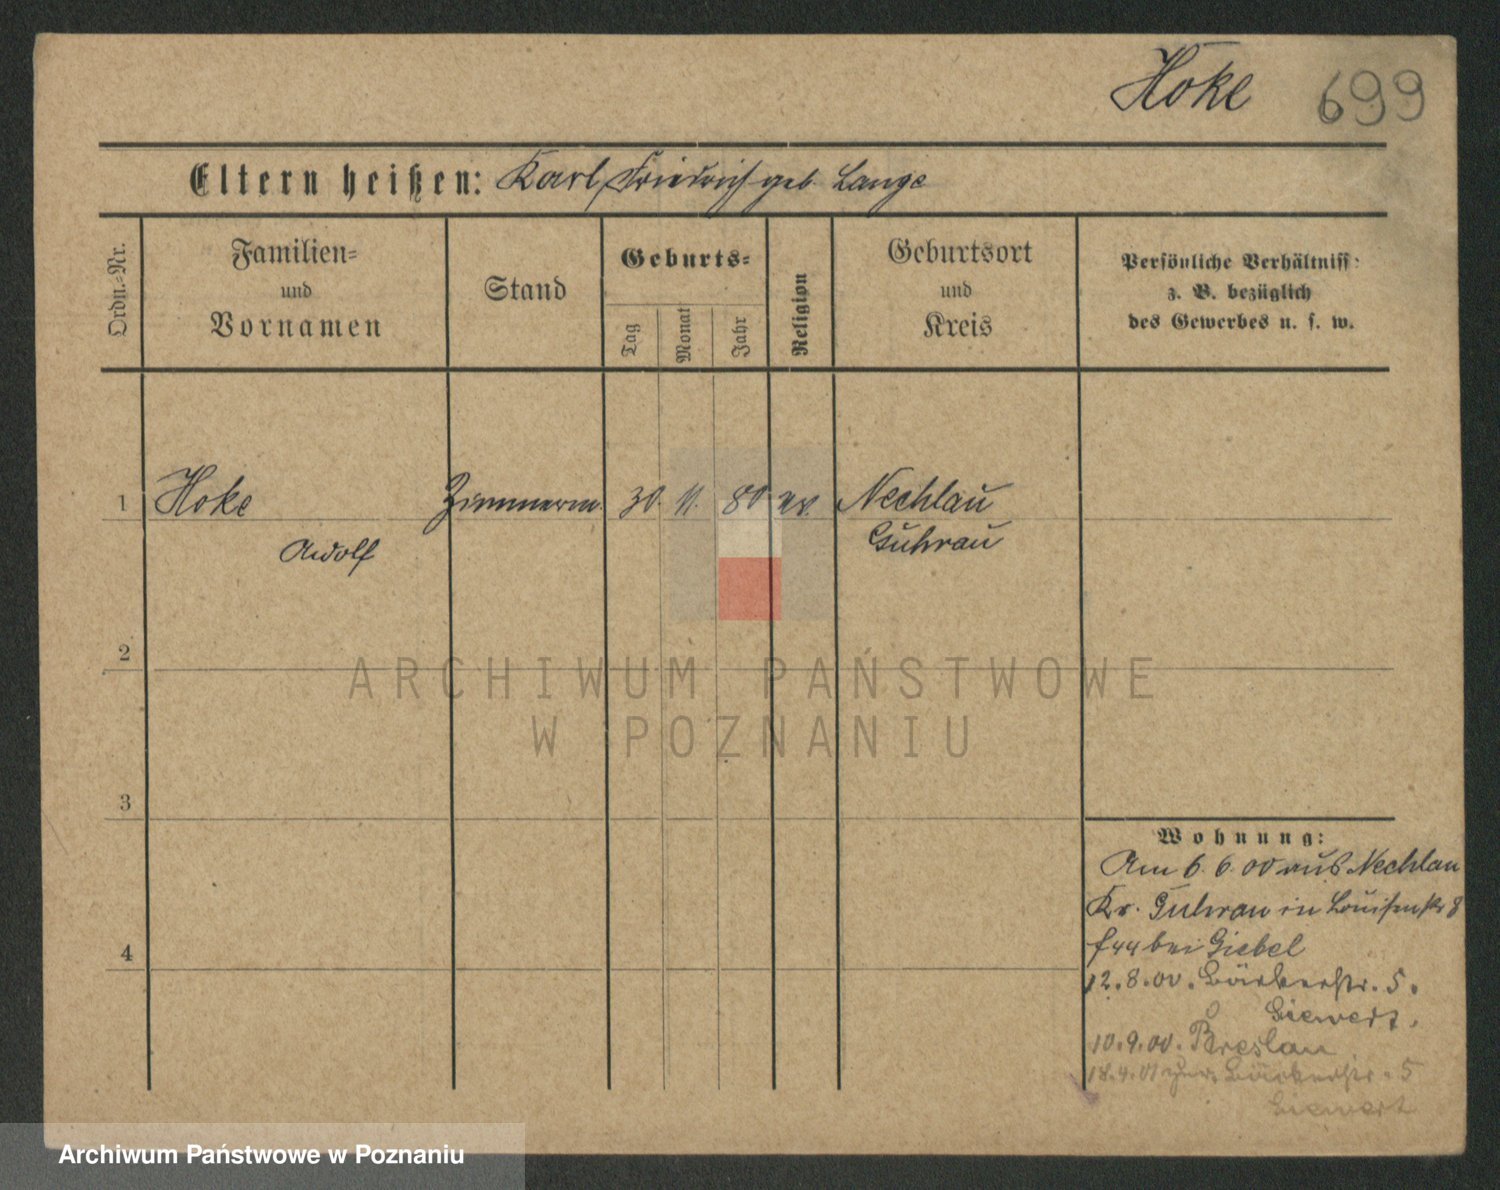 Hoke 699
Eltern heißen: Karl, Friedrich geb. Lange
Ordn.-Nr.
Familien-
und
Vornamen
Stand
Geburts-
Tag
Monat
Jahr
Religion
Geburtsort
und
Kreis
Persönliche Verhältniss:
z. B. bezüglich
des Gewerbes u. s. w.
1 Hoke Zimmerm. 30. 11. 80 ev. Nechlau
Adolf Guhrau
2
ARCHIWUM PAŃSTWOWE
W POZNANIU
3
Wohnung:
Am 6. 6. 00 aus Nechlau
Kr. Guhrau in Louisenstr 8
bei Giebel
4
12. 8. 00. Bäckerstr. 5.
Siewert.
10. 9. 00. Breslau
18. 4. 01 zur. Bäckerstr. 5
Siewert
Archiwum Państwowe w Poznaniu